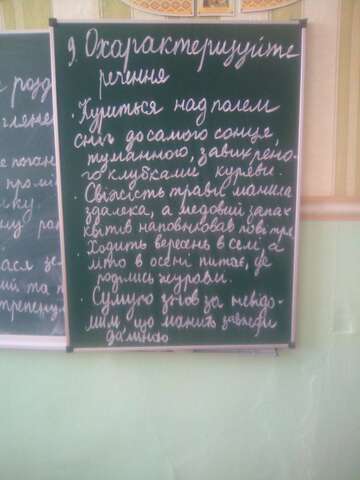 9. Охарактеризуйте
речення
· Курився над полем
сніг до самого сонця,
туманного, завихрено-
го клубками куряви.
· Свіжість трави манила
здалека, а медовий запах
квітів наповнював повітря
· Ходить вересень в селі, а
літо в осені питає, де
поділись журавлі.
· Сумую знов за невідо-
мим, що манить завжди
далиною
розд
гляне
пога
промі
ну
ася зе
ий та п
трепену